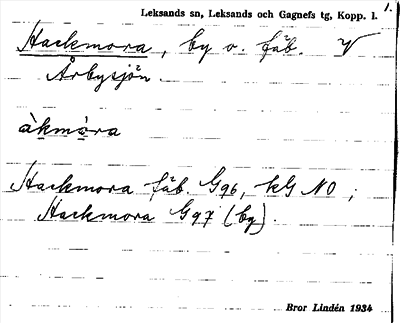 1.
Leksands sn, Leksands och Gagnefs tg, Kopp. l.
Hackmora, by o. fäb. V
Årbysjön.
àkmò̱ra
Hackmora fäb. G96, kG NO ;
Hackmora G97 (by).
Bror Lindén 1934